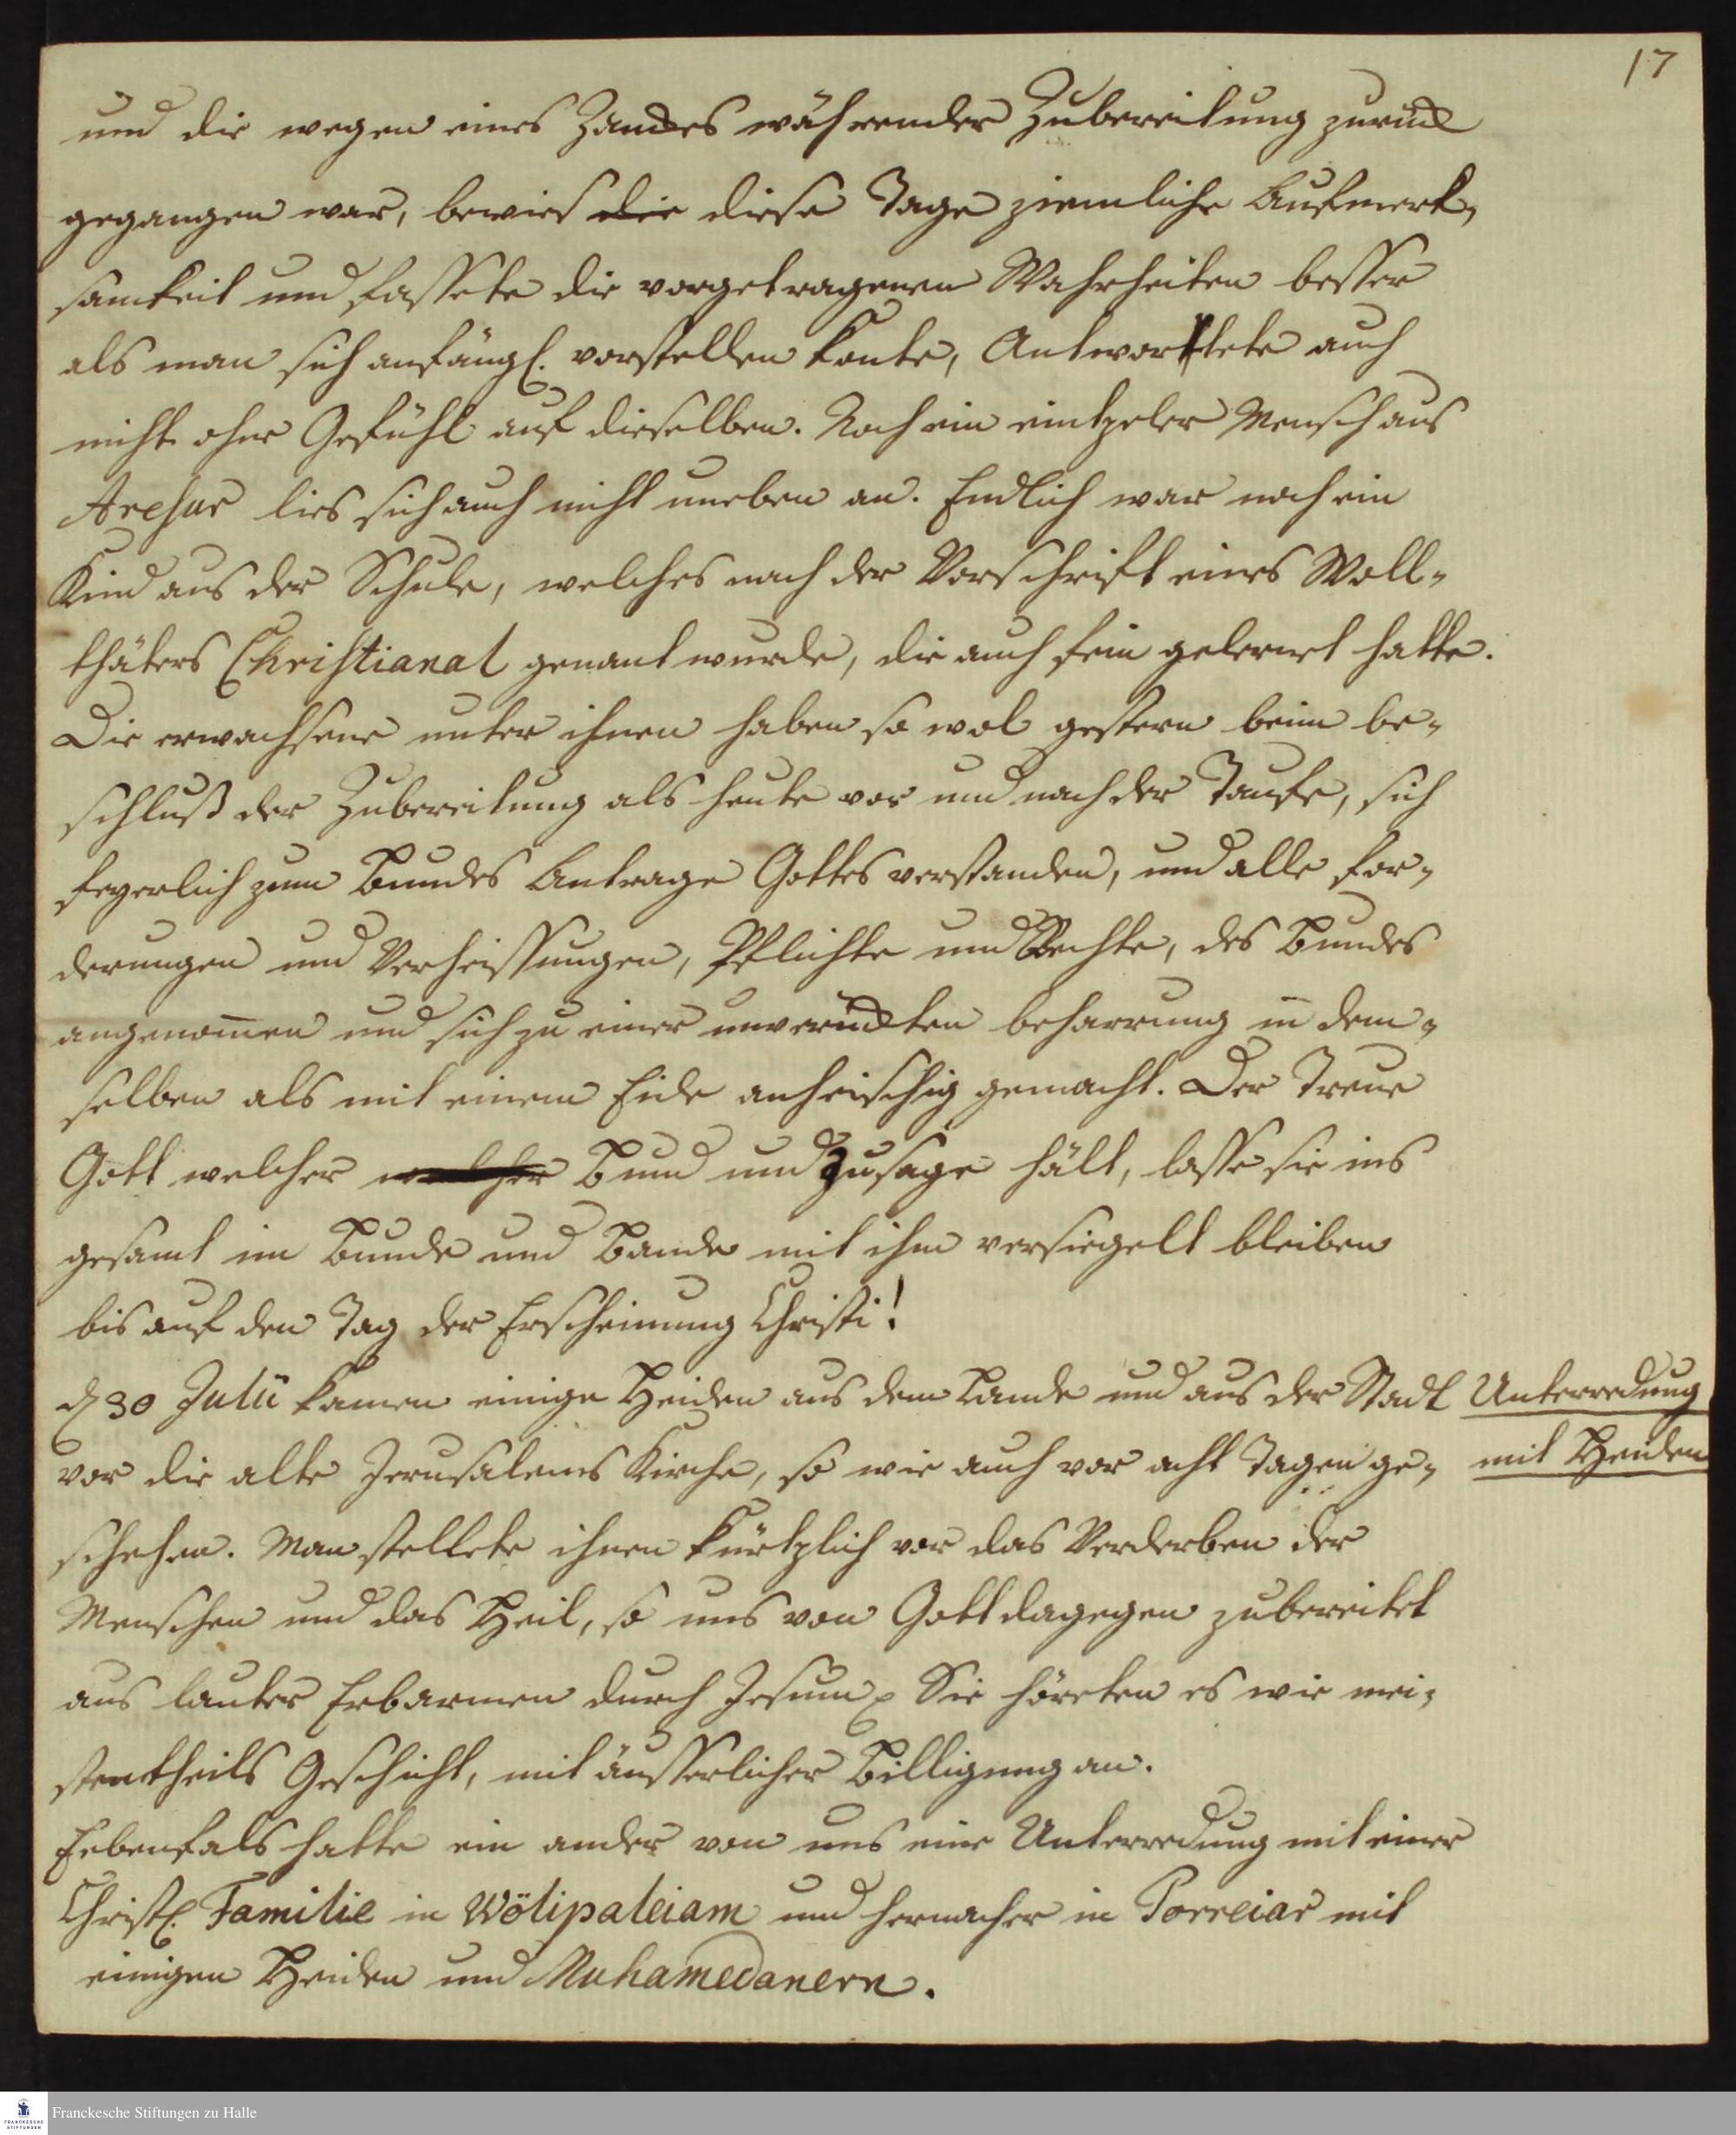 17
und die wegen eines Zanckes währender Zubereitung zurück
gegangen war, bewies die diese Tage ziemliche Aufmerk-
samkeit und fassete die vorgetragenen Wahrheiten besser
als man sich anfängl. vorstellen konte, Antwortete auch
nicht ohne Gefühl auf dieselben. Noch ein eintzeler Mensch aus
Arehur lies sich auch nicht uneben an. Endlich war noch ein
Kind aus der Schule, welches nach der Vorschrift eines Woll-
thäters Christianal genant wurde, die auch fein gelernet hatte.
Die erwachsene unter ihnen haben so wol gestern beim be-
schluß der Zubereitung als heute vor und nach der Taufe, sich
feyerlich zum Bundes Antrage Gottes verstanden, und alle for-
derungen und Verheissungen, Pflichte und Rechte, des Bundes
angenom̅en und sich zu einer unverrückten beharrung in dem-
selben als mit einem Eide anheischig gemacht. Der Treue
Gott welcher welcher Bund und Zusage hält, lasse sie ins
gesamt im Bunde und Bande mit ihm versiegelt bleiben
bis auf den Tag der Erscheinung Christi!
d 30 Julii kamen einige Heiden aus dem Lande und aus der Stadt
Unterredung
vor die alte Jerusalems Kirche, so wie auch vor acht Tagen ge-
mit Heiden
schehen. Man stellete ihnen kürtzlich vor das Verderben der
Menschen und das Heil, so uns von Gott dagegen zubereitet
aus lauter Erbarmen durch Jesum p Sie höreten es wie mei-
stentheils Geschicht, mit äusserlicher Billigung an.
Eebenfals hatte ein ander von uns eine Unterredung mit einer
Christl. Familie in Wölipaleiam und hernacher in Porreiar mit
einigen Heiden und Muhamedanern.
Franckesche Stiftungen zu Halle